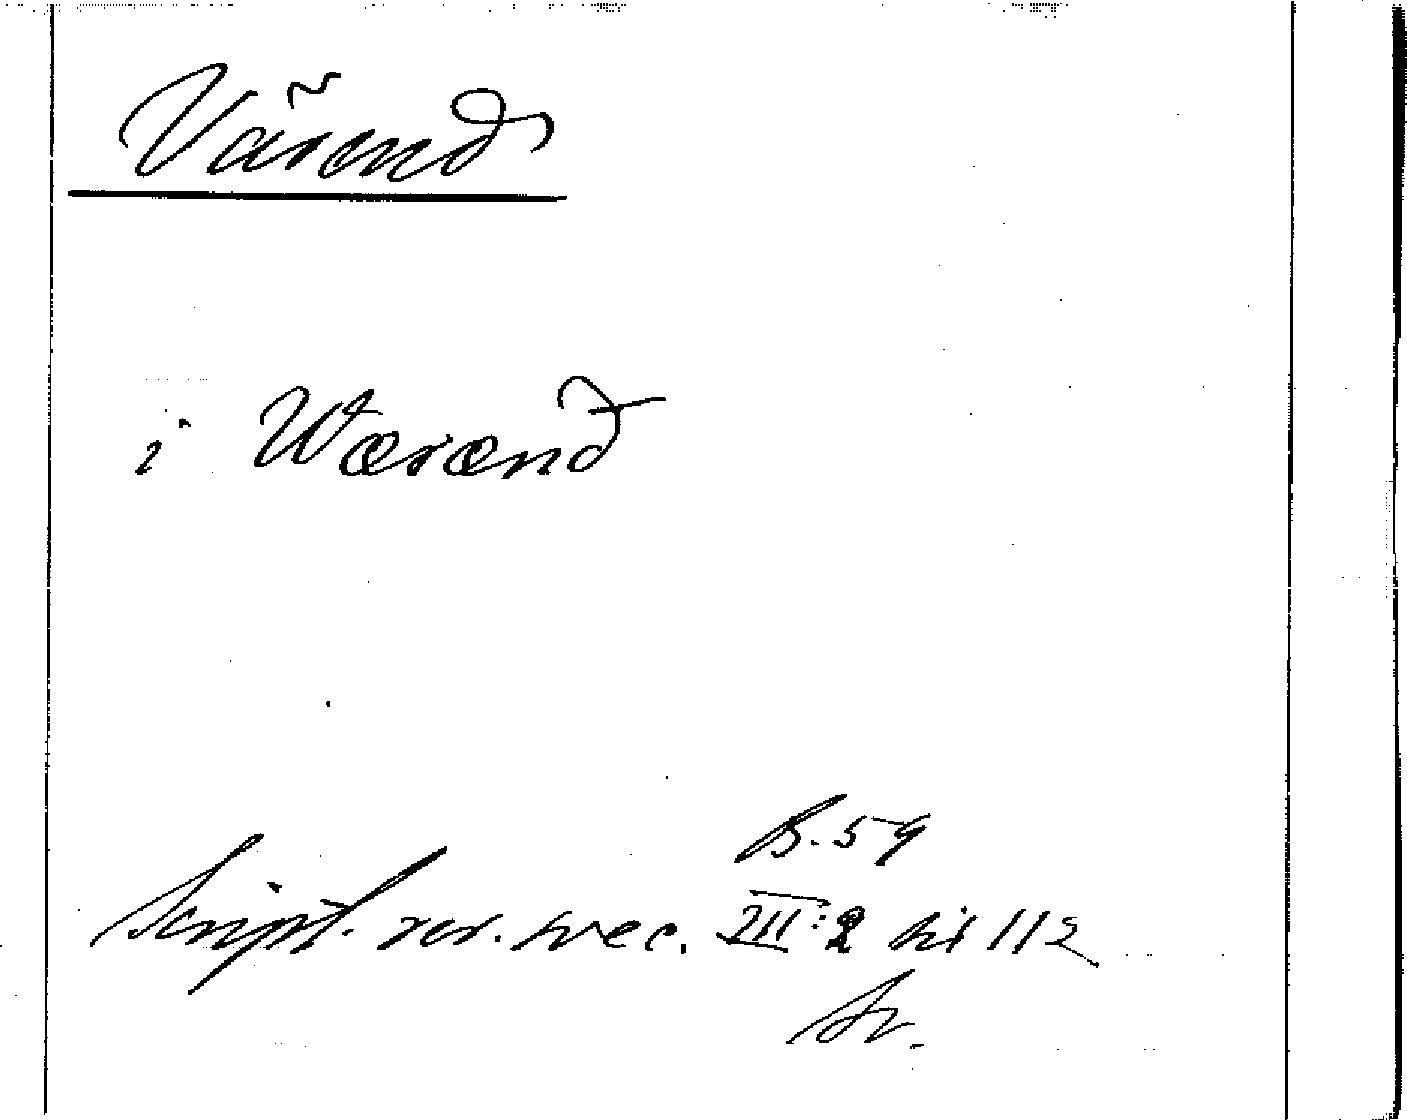 Värend
i Wærænd
B. 59
Script. rer. svec. III:2 sid 112
Sv.